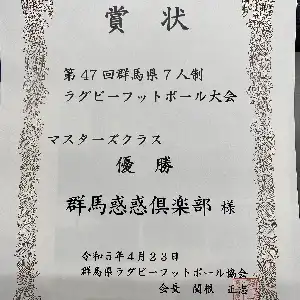 賞状
第47回群馬県7人制
ラグビーフットボール大会
マスターズクラス
優勝
群馬惑惑倶楽部 様
令和5年4月23日
群馬県ラグビーフットボール協会
会長 関根 正